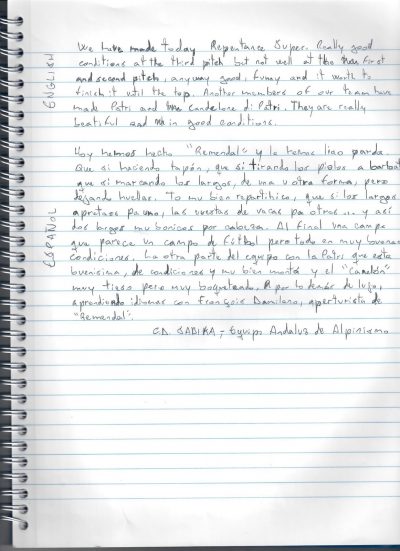 ENGLISH
We have made today Repentance Super. Really good
conditions at the third pitch but not well at the first
and second pitch, anyway good, funny and it worth to
finish it until the top. Another members of our team have
made Patri and the candelone di Patri. They are really
beatiful and in good conditions.
ESPAÑOL
Hoy hemos hecho "Remendal" y la hemos liao parda.
Que si haciendo tapón, que si tirando los piolos a
que si marcando los largos, de una u otra forma, pero
dejando huellas. To mu bien repartihico, que si los largos
apretaos pa uno, las cuestas de vacas pa otros... y así
dos largos mu bonicos por cabeza. Al final una campa
que parece un campo de fútbol pero todo en muy buenas
condiciones. La otra parte del equipo con la Patri que esta
buenisima, de condiciones y mu bien montá y el
muy tieso pero muy boqueteado. Y por lo demás de lujo,
aprendiendo idiomas con François Damilano, aperturista de
"Remendal".
C.D. SABIKA - Equipo Andaluz de Alpinismo